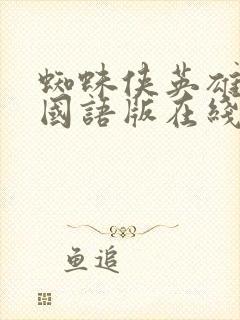 蜘蛛侠英雄
國語版在綫
鱼追